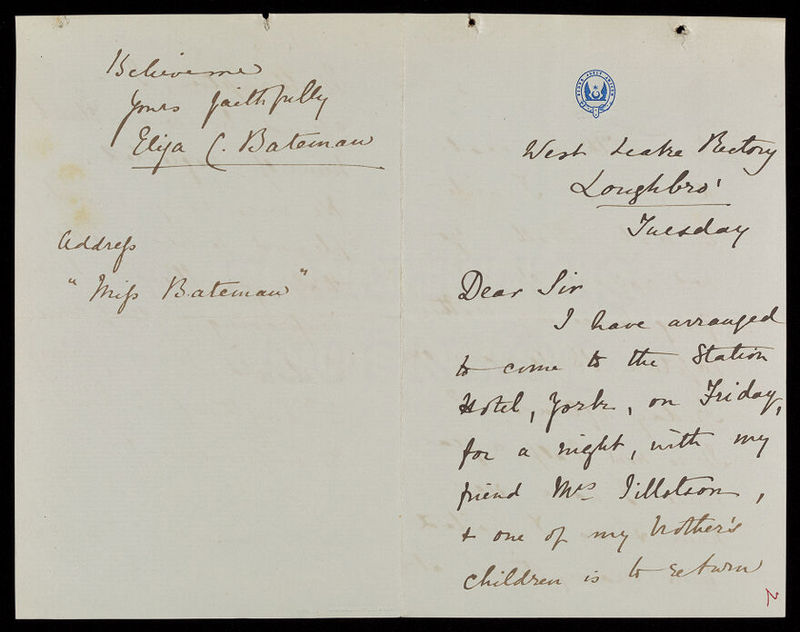 West Leake Rectory
Loughbro'
Tuesday
Dear Sir
I have arranged
to come to the Station
Hotel, York, on Friday,
for a night, with my
friend Mrs Tillotson,
& one of my brother's
children is to return
Believe me
Yours faithfully
Eliza C. Bateman
Address
"Miss Bateman"